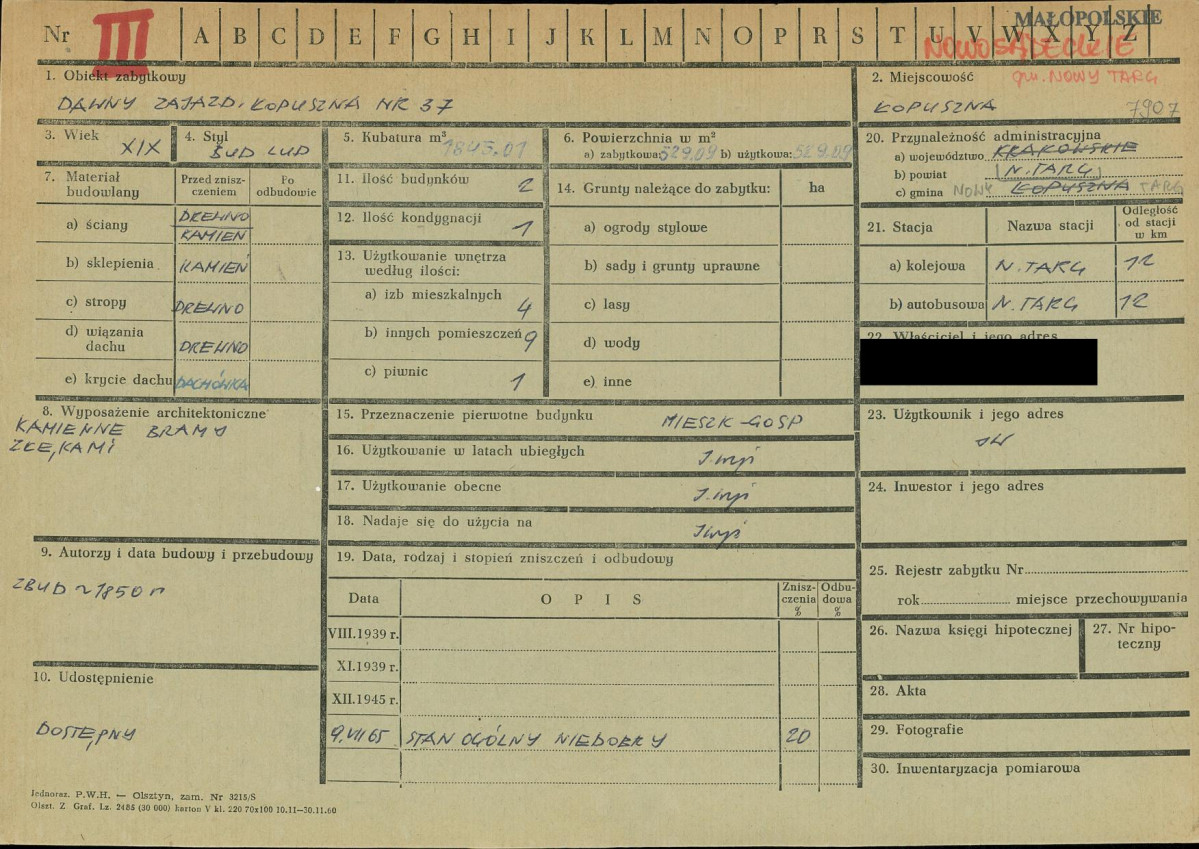 Nr III A B C D E F G H I J K L M N O P R S T U V W X Y Z
MAŁOPOLSKIE
NOWOSĄDECKIE
gm. NOWY TARG
1. Obiekt zabytkowy
DAWNY ZAJAZD, ŁOPUSZNA NR 37
2. Miejscowość
ŁOPUSZNA 7907
3. Wiek XIX
4. Styl
BUD LUD
5. Kubatura m³
1843.01
6. Powierzchnia w m²
a) zabytkowa: 529.09 b) użytkowa: 529.09
7. Materiał budowlany
Przed zniszczeniem
Po odbudowie
a) ściany DREWNO
KAMIEŃ
b) sklepienia KAMIEŃ
c) stropy DREWNO
d) wiązania dachu DREWNO
e) krycie dachu DACHÓWKA
8. Wyposażenie architektoniczne
KAMIENNE BRAMY
Z ŁĘKAMI
9. Autorzy i data budowy i przebudowy
ZBUD ~ 1850 r
10. Udostępnienie
DOSTĘPNY
11. Ilość budynków 2
12. Ilość kondygnacji 1
13. Użytkowanie wnętrza według ilości:
a) izb mieszkalnych 4
b) innych pomieszczeń 9
c) piwnic 1
14. Grunty należące do zabytku: ha
a) ogrody stylowe
b) sady i grunty uprawne
c) lasy
d) wody
e) inne
15. Przeznaczenie pierwotne budynku MIESZK-GOSP
16. Użytkowanie w latach ubiegłych J. wyż
17. Użytkowanie obecne J. wyż
18. Nadaje się do użycia na J wyż
19. Data, rodzaj i stopień zniszczeń i odbudowy
Data OPIS Zniszczenia % Odbudowa %
VIII.1939 r.
XI.1939 r.
XII.1945 r.
9.VII 65 STAN OGÓLNY NIEDOBRY 20
20. Przynależność administracyjna
a) województwo KRAKOWSKIE
b) powiat N. TARG
c) gmina NOWY ŁOPUSZNA TARG
21. Stacja Nazwa stacji Odległość od stacji w km
a) kolejowa N. TARG 12
b) autobusowa N. TARG 12
22. Właściciel i jego adres
23. Użytkownik i jego adres
JW
24. Inwestor i jego adres
25. Rejestr zabytku Nr
rok miejsce przechowywania
26. Nazwa księgi hipotecznej
27. Nr hipoteczny
28. Akta
29. Fotografie
30. Inwentaryzacja pomiarowa
Jednoraz. P.W.H. — Olsztyn, zam. Nr 3215/S
Olszt. Z Graf. Lz. 2485 (30 000) karton V kl. 220 70x100 10.11—30.11.60